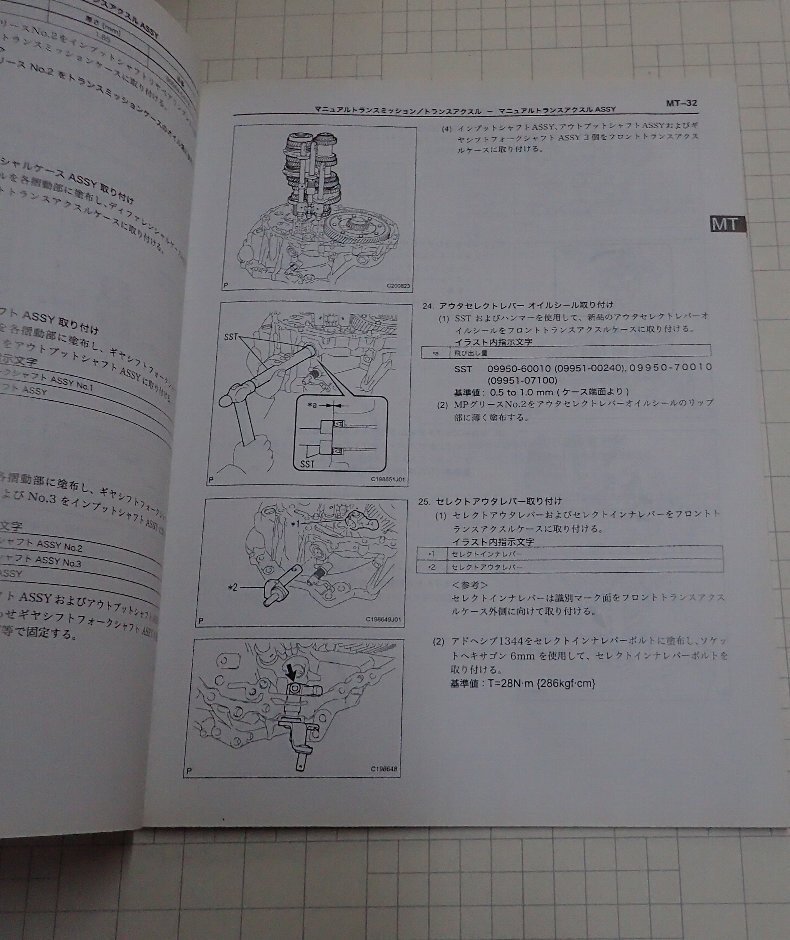 ンスアクスル ASSY
重さ (mm)
1.85
リースNo.2をインプットシャフト
トランスミッションケースに取り付ける。
リース No.2 をトランスミッションケースの
シャルケース ASSY 取り付け
ルを各摺動部に塗布し、ディファレンシャルケース
トトランスアクスルケースに取り付ける。
フト ASSY 取り付け
を各摺動部に塗布し、ギヤシフトフォーク
をアウトプットシャフトASSYに取り付ける。
指示文字
クシャフト ASSY No.1
フト ASSY
各摺動部に塗布し、ギヤシフトフォーク
よび No.3 をインプットシャフトASSY
文字
シャフト ASSY No.2
シャフト ASSY No.3
ASSY
フト ASSYおよびアウトプットシャフト
わせギヤシフトフォークシャフト ASSY
等で固定する。
マニュアルトランスミッション/トランスアクスル － マニュアルトランスアクスル ASSY
MT–32
MT
(4) インプットシャフトASSY、アウトプットシャフトASSYおよびギ
ヤシフトフォークシャフト ASSY 3 個をフロントトランスアクス
ルケースに取り付ける。
P
C200823
24. アウタセレクトレバー オイルシール取り付け
(1) SST およびハンマーを使用して、新品のアウタセレクトレバーオ
イルシールをフロントトランスアクスルケースに取り付ける。
イラスト内指示文字
*a 飛び出し量
SST 09950-60010 (09951-00240), 09950-70010
(09951-07100)
基準値： 0.5 to 1.0 mm ( ケース端面より )
(2) MPグリースNo.2をアウタセレクトレバーオイルシールのリップ
部に薄く塗布する。
SST
*a
SST
P
C198651J01
25. セレクトアウタレバー取り付け
(1) セレクトアウタレバーおよびセレクトインナレバーをフロントト
ランスアクスルケースに取り付ける。
イラスト内指示文字
*1 セレクトインナレバー
*2 セレクトアウタレバー
＜参考＞
セレクトインナレバーは識別マーク面をフロントトランスアクス
ルケース外側に向けて取り付ける。
*1
*2
P
C198649J01
(2) アドヘシブ1344をセレクトインナレバーボルトに塗布し、ソケッ
トヘキサゴン 6mm を使用して、セレクトインナレバーボルトを
取り付ける。
基準値：T=28N·m {286kgf·cm}
P
C198648